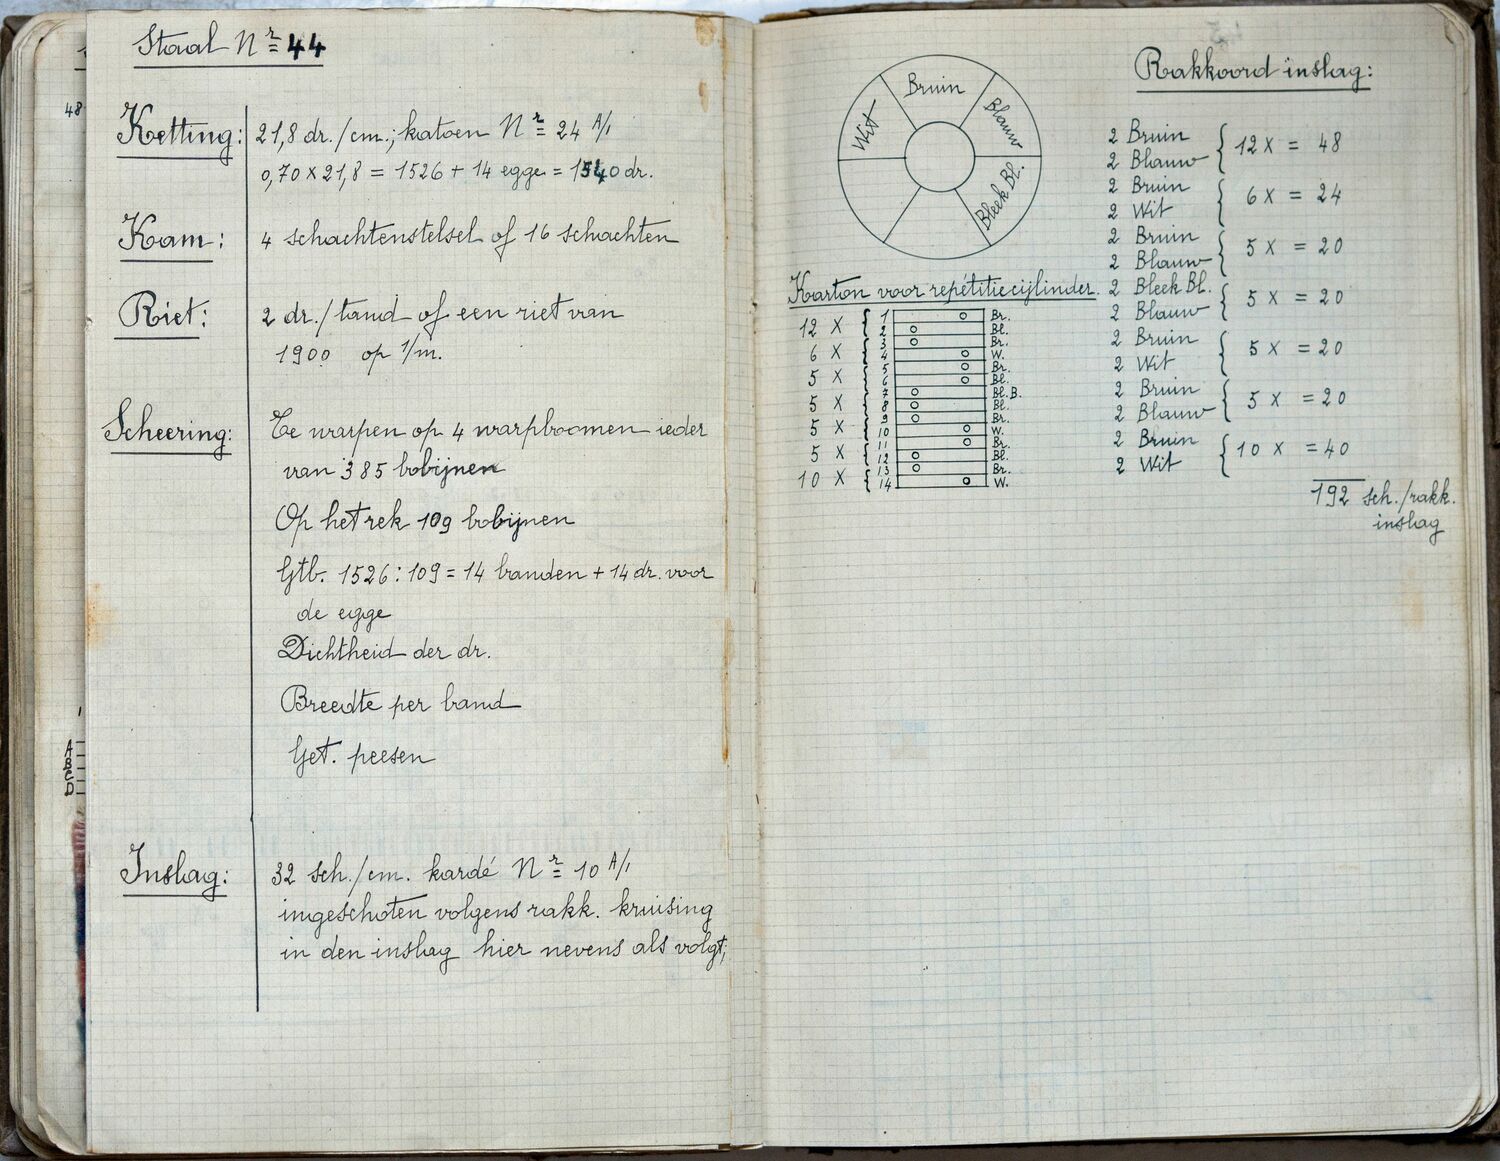 Staal Nr 44
Ketting: 21,8 dr./cm.; katoen Nr 24 A/1
0,70 x 21,8 = 1526 + 14 egge = 1540 dr.
Kam: 4 schachtenstelsel of 16 schachten
Riet: 2 dr./tand of een riet van
1900 op 1/m.
Scheering: Te warpen op 4 warpboomen ieder
van 385 bobijnen
Op het rek 109 bobijnen
Gtb. 1526 : 109 = 14 banden + 14 dr. voor
de egge
Dichtheid der dr.
Breedte per band
Get. peesen
Inslag: 32 sch./cm. kardé Nr 10 A/1
ingeschoten volgens rakk. kruising
in den inslag hier nevens als volgt;
48
A
B
C
D
Wit
Bruin
Blauw
Bleek Bl.
Karton voor repétitiecijlinder.
12 x { 1 Br.
2 Bl.
6 x { 3 Br.
4 W.
5 x { 5 Br.
6 Bl.
5 x { 7 Bl. B.
8 Bl.
5 x { 9 Br.
10 W.
5 x { 11 Br.
12 Bl.
10 x { 13 Br.
14 W.
Rakkoord inslag:
2 Bruin
2 Blauw { 12 x = 48
2 Bruin
2 Wit { 6 x = 24
2 Bruin
2 Blauw { 5 x = 20
2 Bleek Bl.
2 Blauw { 5 x = 20
2 Bruin
2 Wit { 5 x = 20
2 Bruin
2 Blauw { 5 x = 20
2 Bruin
2 Wit { 10 x = 40
192 sch./rakk.
inslag